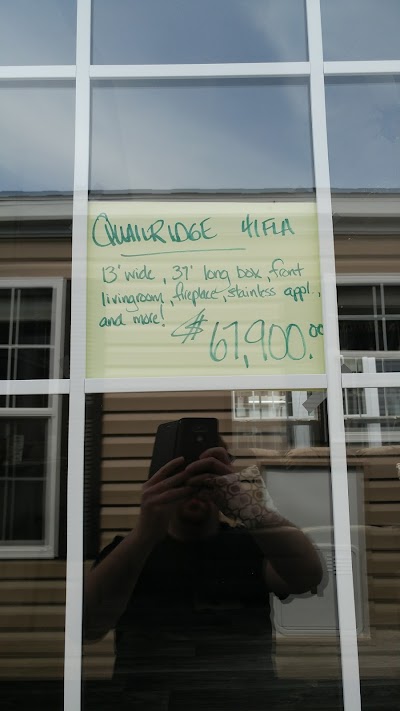 QUAILRIDGE 41FLA
13' wide, 37' long box, front
livingroom, fireplace, stainless appl.,
and more! $67,900.00